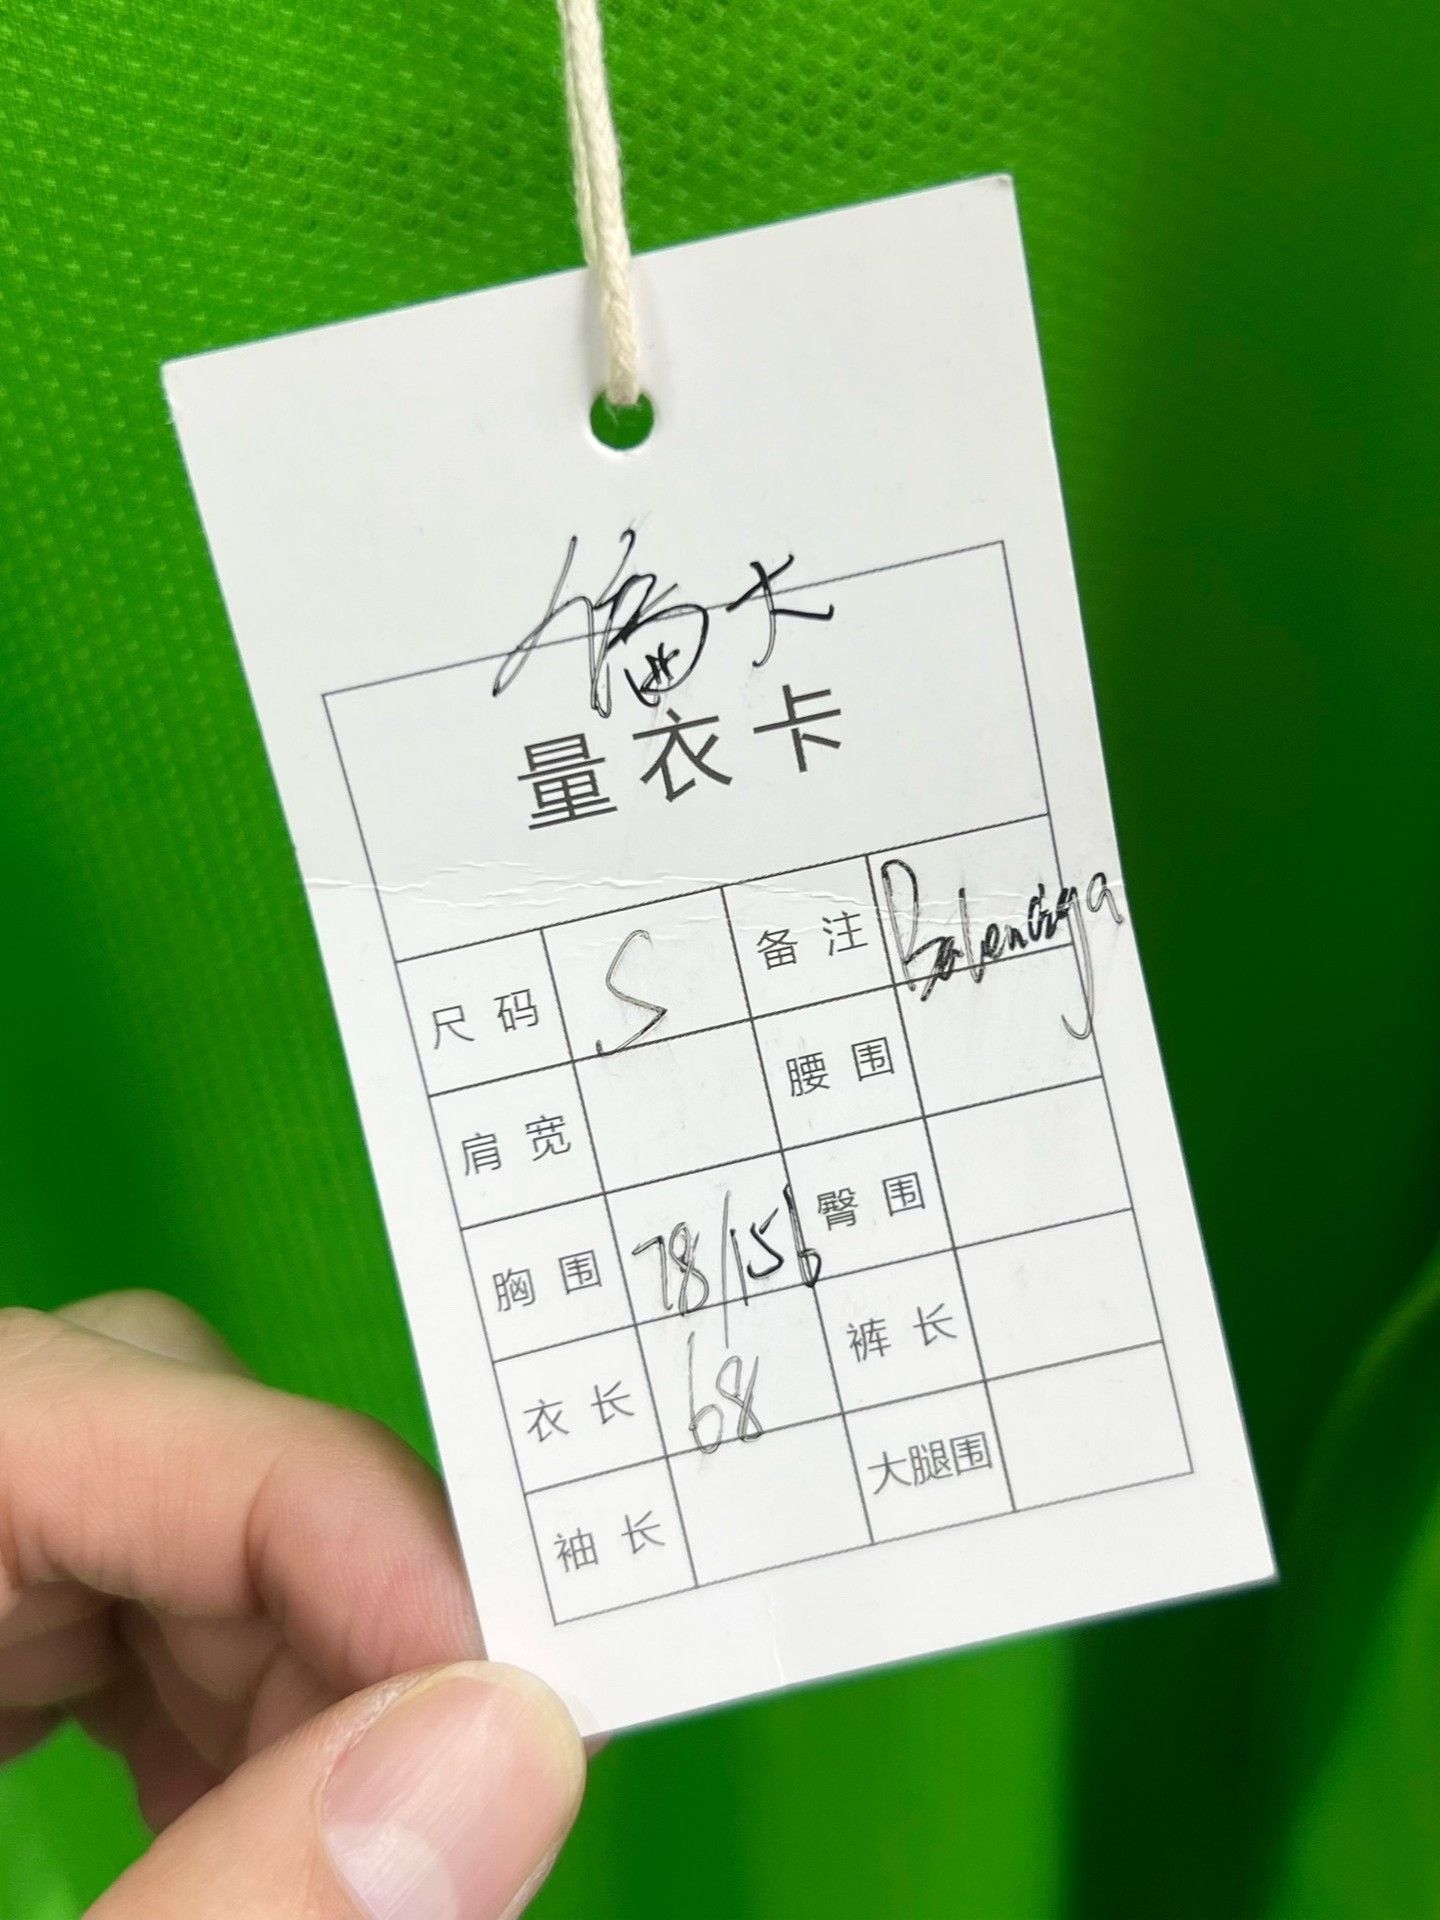 偏大
量衣卡
尺码 S 备注 Balenciaga
肩宽 腰围
胸围 78/156 臀围
衣长 68 裤长
袖长 大腿围